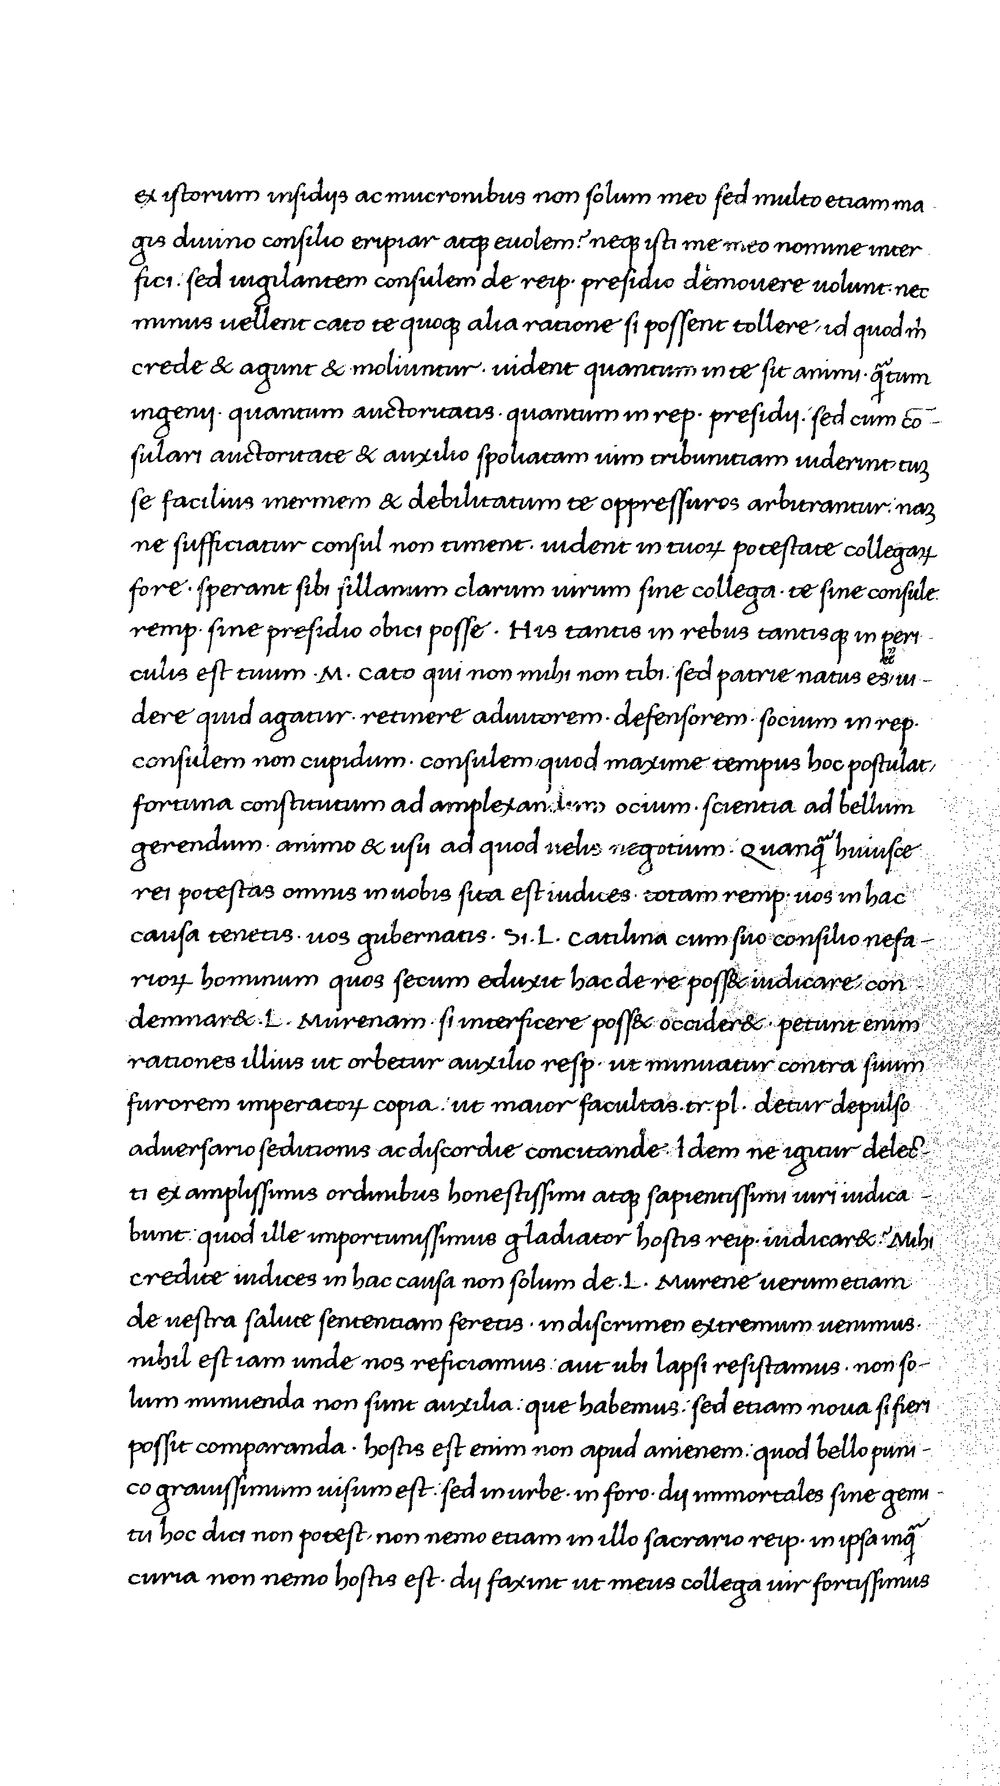 ex istorum insidijs ac mucronibus non solum meo sed multo etiam ma
gis diuino consilio eripiar atqꝫ euolem? neqꝫ isti me meo nomine inter
fici: sed uigilantem consulem de reip. presidio demouere uolunt. nec
minus uellent cato te quoqꝫ alia ratione si possent tollere, id quod m̄
crede & agunt & moliuntur. uident quantum in te sit animi. q̄tum
ingenij. quantum auctoritatis. quantum in rep. presidij. sed cum cō-
sulari auctoritate & auxilio spoliatam uim tribunitiam uiderint, tuꝫ
se facilius inermem & debilitatum te oppressuros arbitrantur: naꝫ
ne sufficiatur consul non timent. uident in tuoꝝ potestate collegaꝝ
fore. sperant sibi sillanum clarum uirum sine collega. te sine consule
remp. sine presidio obici posse. His tantis in rebus tantisqꝫ in peri
culis est tuum .M. Cato qui non mihi non tibi: sed patrie natus es, ui-
dere quid agatur. retinere adiutorem. defensorem. socium in rep.
consulem non cupidum. consulem, quod maxime tempus hoc postulat,
fortuna constitutum ad amplexandum ocium. scientia ad bellum
gerendum. animo & usu ad quod uelis negotium. Quanq̄ huiusce
rei potestas omnis in uobis sita est iudices. totam remp. uos in hac
causa tenetis. uos gubernatis. Si .L. Catilina cum suo consilio nefa-
rioꝝ hominum quos secum eduxit hac de re poss& iudicare, con
demnar& .L. Murenam. si interficere poss& occider&. petunt enim
rationes illius ut orbetur auxilio resp. ut minuatur contra suum
furorem imperatoꝝ copia: ut maior facultas .tr. pl. detur depulso
aduersario seditionis ac discordie concitande. Idem ne igitur delec-
ti ex amplissimis ordinibus honestissimi atqꝫ sapientissimi uiri iudica-
bunt: quod ille importunissimus gladiator hostis reip. iudicar&? Mihi
credite iudices in hac causa non solum de .L. Murene uerum etiam
de uestra salute sententiam feretis. in discrimen extremum uenimus.
nihil est iam unde nos reficiamus: aut ubi lapsi resistamus. non so-
lum minuenda non sunt auxilia: que habemus: sed etiam noua si fieri
possit comparanda. hostis est enim non apud anienem: quod bello puni-
co grauissimum uisum est: sed in urbe. in foro. dij immortales sine gemi-
tu hoc dici non potest, non nemo etiam in illo sacrario reip. in ipsa inq̄
curia non nemo hostis est. dij faxint ut meus collega uir fortissimus